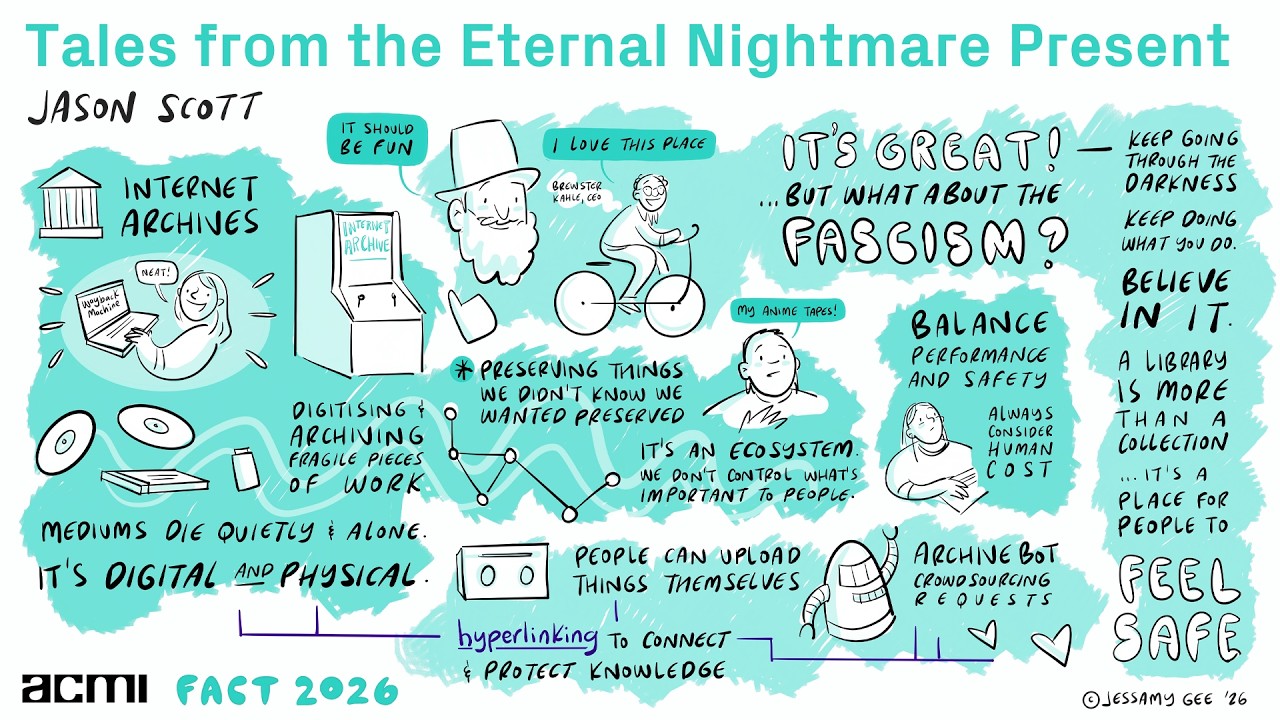 Tales from the Eternal Nightmare Present
JASON SCOTT
INTERNET
ARCHIVES
NEAT!
Wayback
Machine
INTERNET
ARCHIVE
IT SHOULD
BE FUN
I LOVE THIS PLACE
BREWSTER
KAHLE, CEO
DIGITISING &
ARCHIVING
FRAGILE PIECES
OF WORK
MEDIUMS DIE QUIETLY & ALONE.
IT'S DIGITAL AND PHYSICAL.
* PRESERVING THINGS
WE DIDN'T KNOW WE
WANTED PRESERVED
MY ANIME TAPES!
IT'S AN ECOSYSTEM.
WE DON'T CONTROL WHAT'S
IMPORTANT TO PEOPLE.
PEOPLE CAN UPLOAD
THINGS THEMSELVES
hyperlinking TO CONNECT
& PROTECT KNOWLEDGE
IT'S GREAT! —
...BUT WHAT ABOUT THE
FASCISM?
BALANCE
PERFORMANCE
AND SAFETY
ALWAYS
CONSIDER
HUMAN
COST
ARCHIVE BOT
CROWDSOURCING
REQUESTS
KEEP GOING
THROUGH THE
DARKNESS
KEEP DOING
WHAT YOU DO.
BELIEVE
IN IT.
A LIBRARY
IS MORE
THAN A
COLLECTION
... IT'S A
PLACE FOR
PEOPLE TO
FEEL
SAFE
acmi FACT 2026
©JESSAMY GEE '26